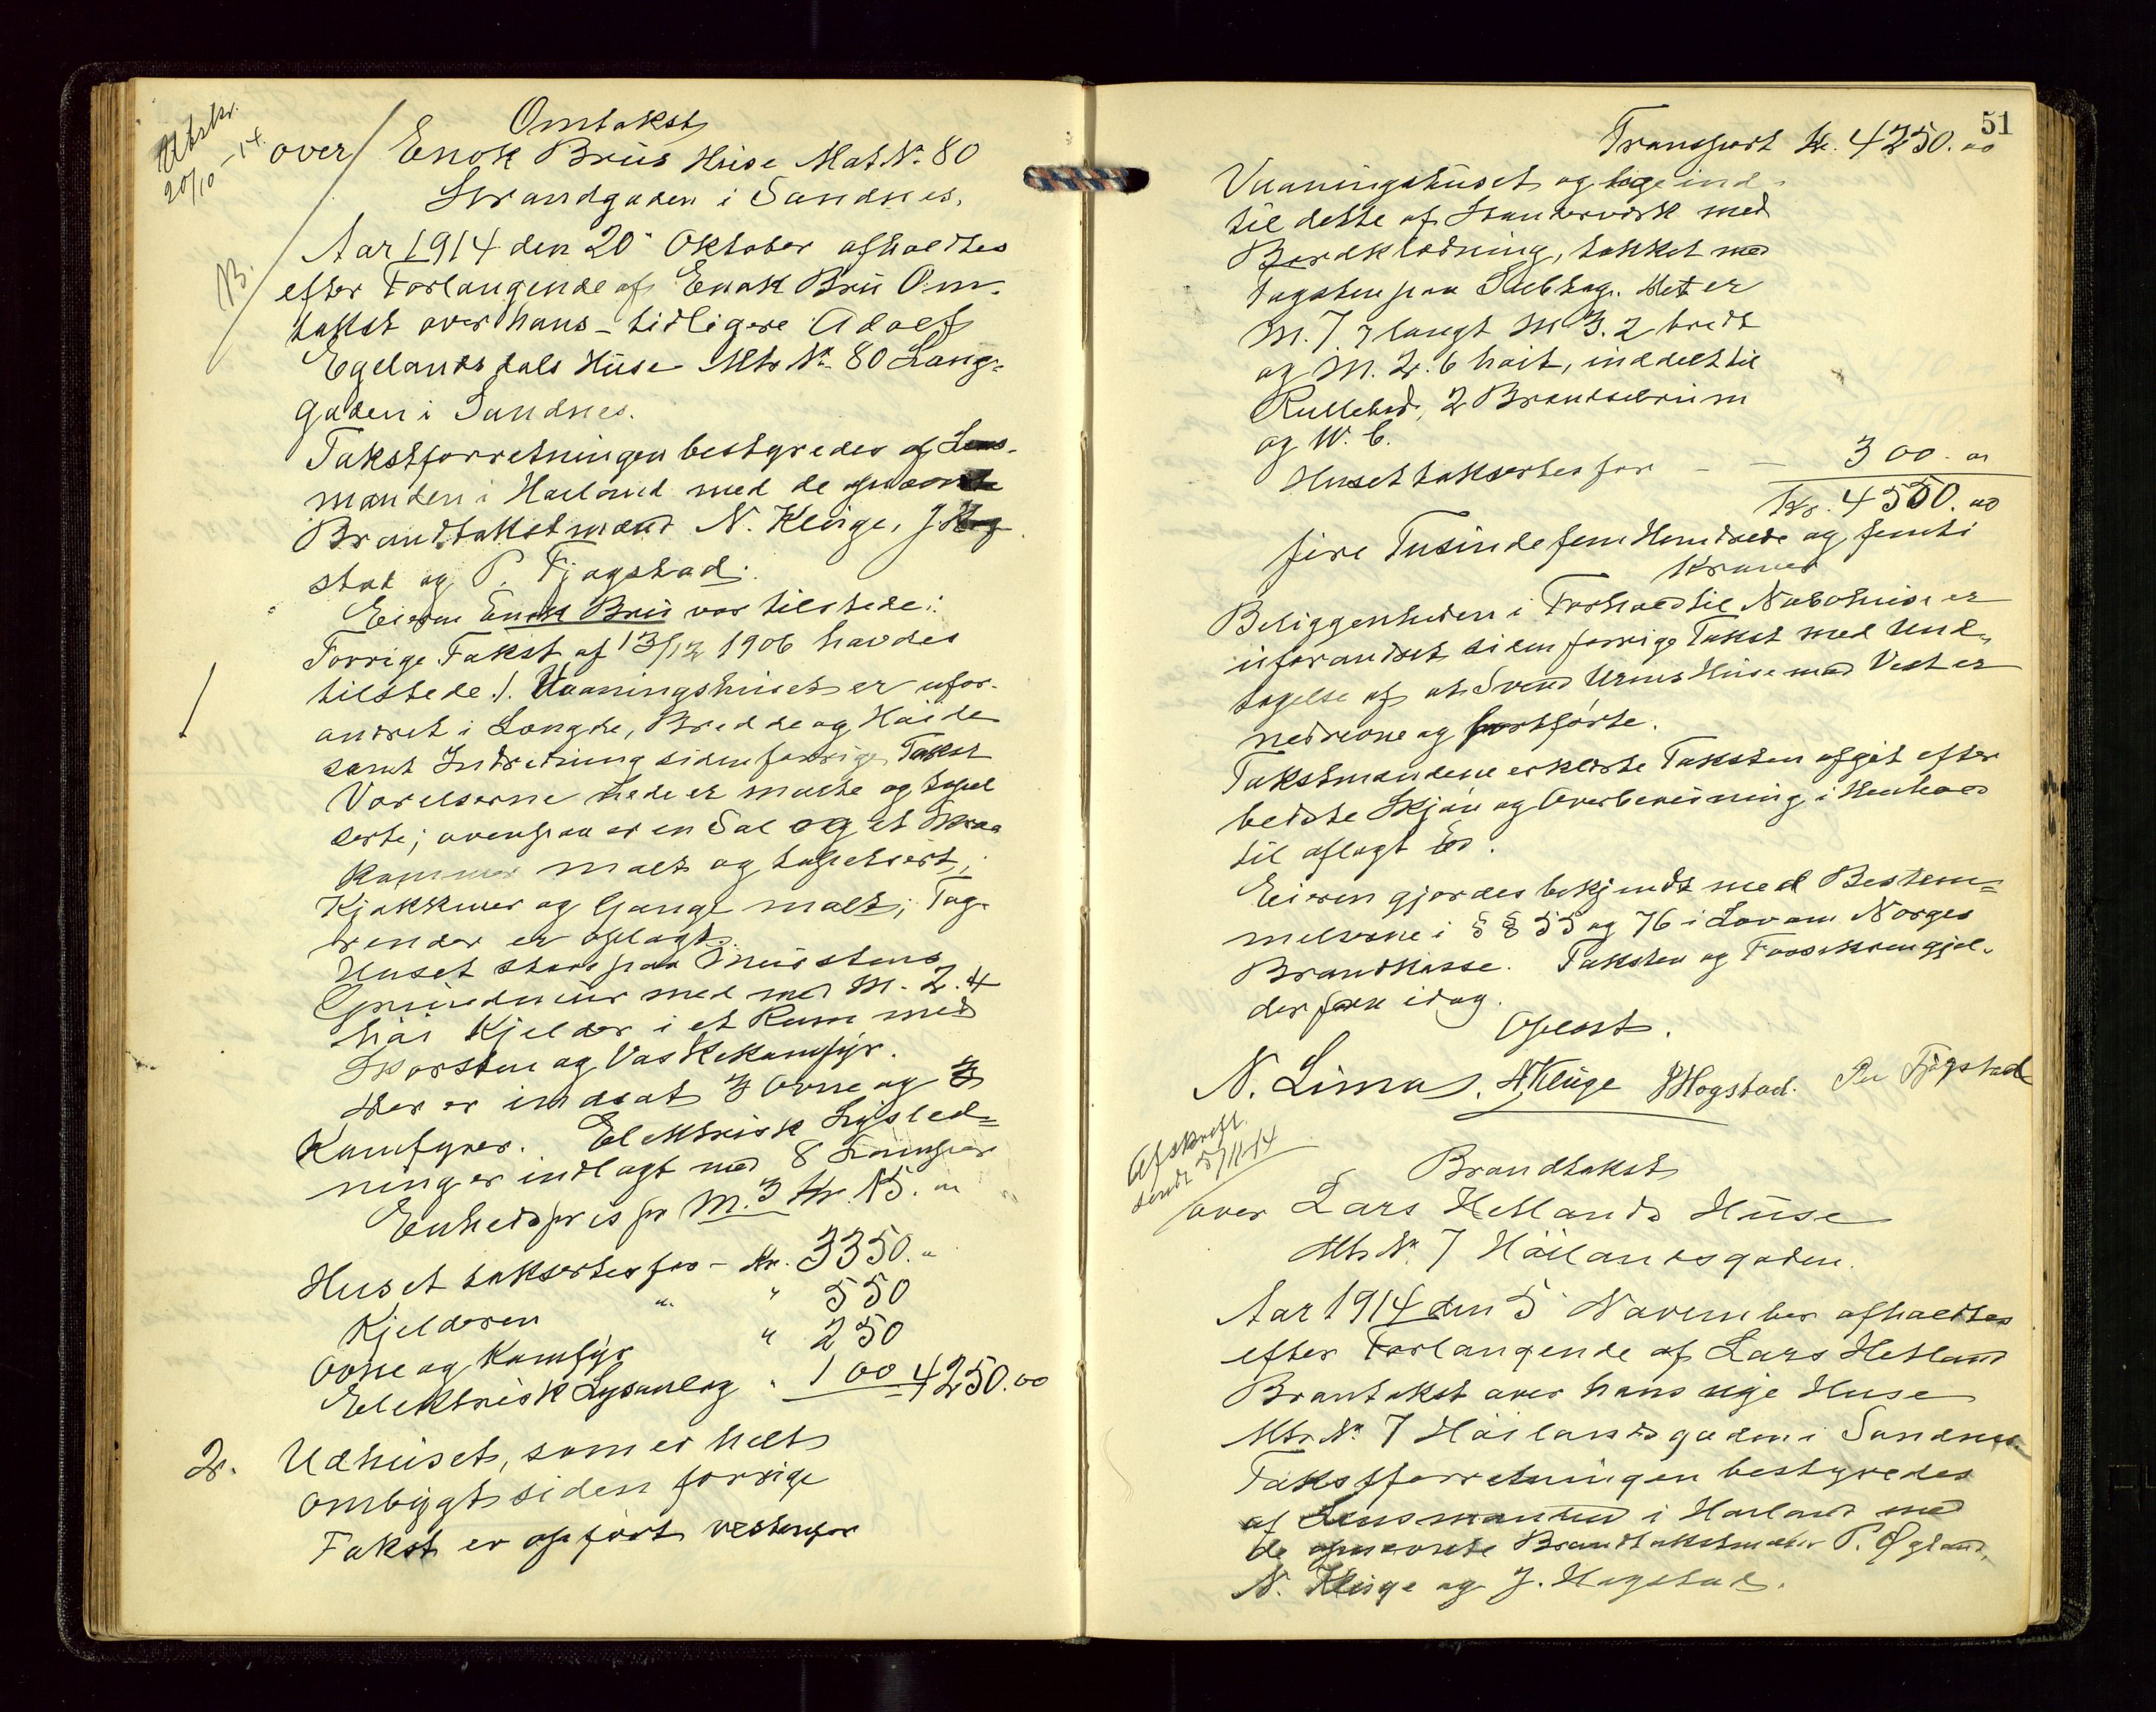 Utskr.
20/10-14.
B.
Omtakst
over Enok Brüs Hüse Mat № 80
Strandgaden i Sandnes.
Aar 1914 den 20 Oktober afholdtes
efter Forlangende af Enok Brü Om-
takst over hans - tidligere Adolf
Egelandsdals Hüse Mtr. № 80 Lang-
gaden i Sandnes.
Takstforretningen bestyredes af Lens-
manden i Høiland med de opnævnte
Brandtakstmænd N. Klüge, J. Hog
stad og P. Fjogstad.
Eieren Enok Brü var tilstede.
Forrige Takst af 13/12 1906 havdes
tilstede. 1. Vaaningshüset er ufor-
andret i Længde, Bredde og Høide
samt Indretning siden forrige Takst
Værelserne nede er malte og tapet
serte; ovenpaa er en Sal og et Skraa
kammer malt og tapetsert;
Kjøkkener og Gange malt; Tag-
render er oplagt.
Huset staar paa Mürstens
Grundmür med en M. 2.4
høi Kjelder i et Rum med
Skorsten og Vaskekomfyr.
Der er indsat 3 Ovne og 3
Komfyrer. Elektrisk Lysled-
ning er indlagt med 8 Lamper
Enhedspris pr M.3 Kr. 15. "
Huset takseres for - Kr. 3350. "
Kjelderen " " 550
Ovne og Komfyr " 250
Elektrisk Lysanlæg " 100 4250.00
2. Udhüset, som er helt
ombygt siden forrige
Takst er opført vestenfor
51
Transport Kr. 4250.00
Vaaningshüset og lige ind-
til dette af Standerværk med
Bordklædning, tækket med
Tagsten paa Sutag. Det er
M. 7.7 langt M 3.2 bredt
og M. 2.6 høit, inddelt til
Rullebod, 2 Brændselrüm
og W. C.
Huset takseres for - - 300. 00
Kr. 4550.00
fire Tusinde fem Hundrede og femti
Kroner
Beliggenheden i Forhold til Nabohuse er
üforandret siden forrige Takst med Und-
tagelse af at Svend Urnes Hüse mod Vest er
nedrevne og bortførte.
Takstmændene erklærte Taksten afgit efter
bedste Skjøn og Overbevisning i Henhold
til aflagt Ed.
Eieren gjordes bekjendt med Bestem=
melserne i § § 55 og 76 i Lov om Norges
Brandkasse. Taksten og Forsikrengjæl-
der fra idag.
Oplæst.
N. Lima. N. Klüge J Hogstad. Per Fjogstad
Afskrift
sendt 5/11 14
Brandtakst
over Lars Hetlands Hüse
Mtr. № 7 Høilandsgaden.
Aar 1914 den 5 November afholdtes
efter Forlangende af Lars Hetland
Brantakst over hans nye Huse
Mtr. № 7 Høilandsgaden i Sandnes.
Takstforretningen bestyredes
af Lensmanden i Høiland med
de opnævnte Brandtakstmænd P. Øglænd,
N. Klüge og J. Hogstad.